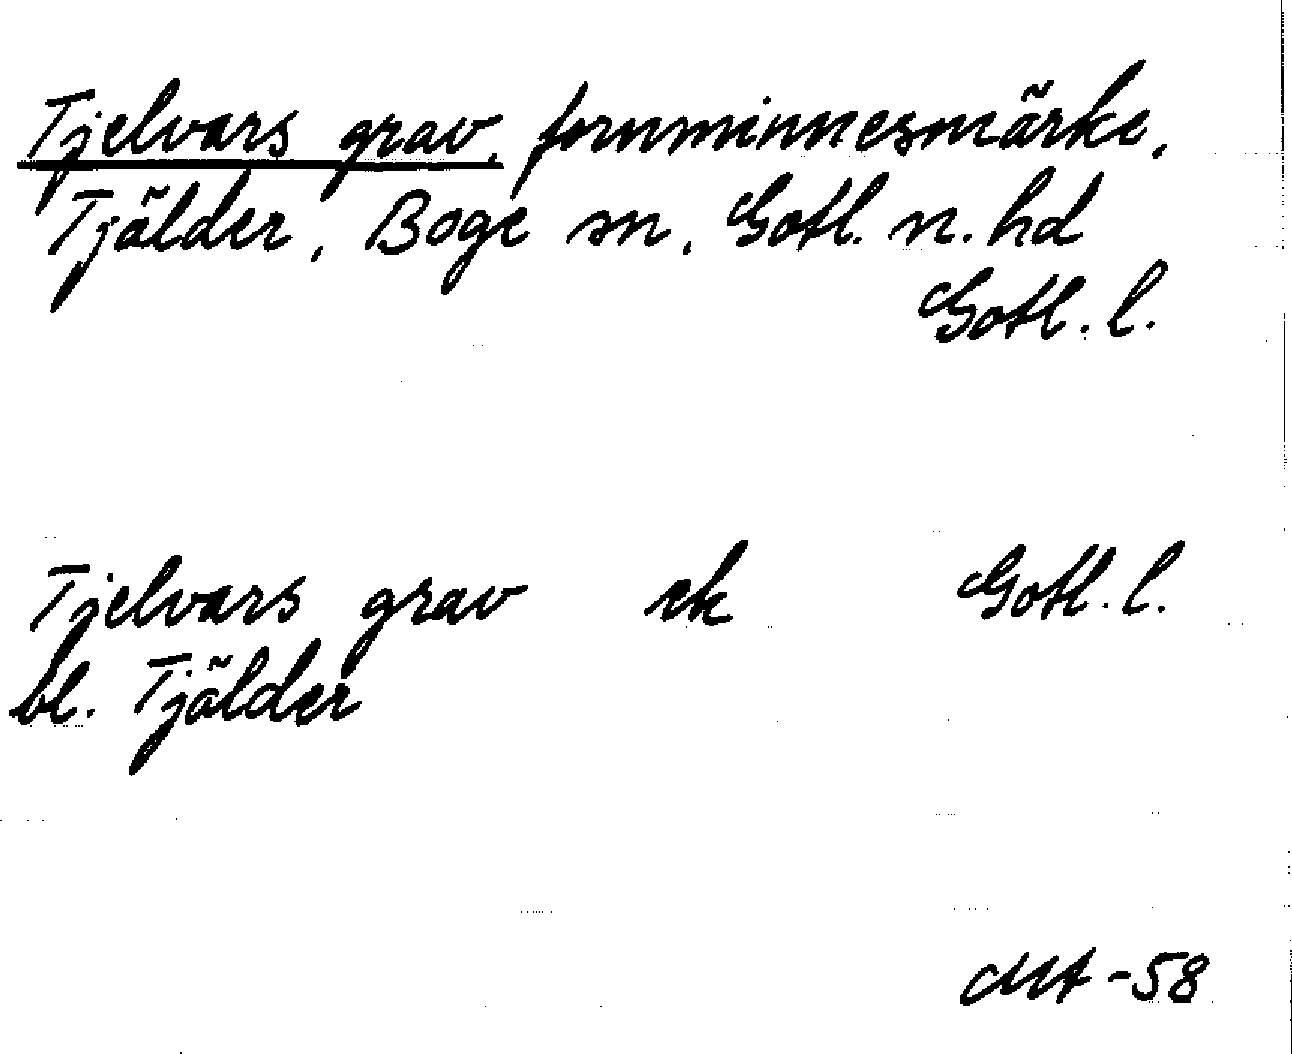 Tjelvars grav, fornminnesmärke,
Tjälder, Boge sn, Gotl. n. hd
Gotl. l.
Tjelvars grav ek Gotl. l.
bl. Tjälder
-58